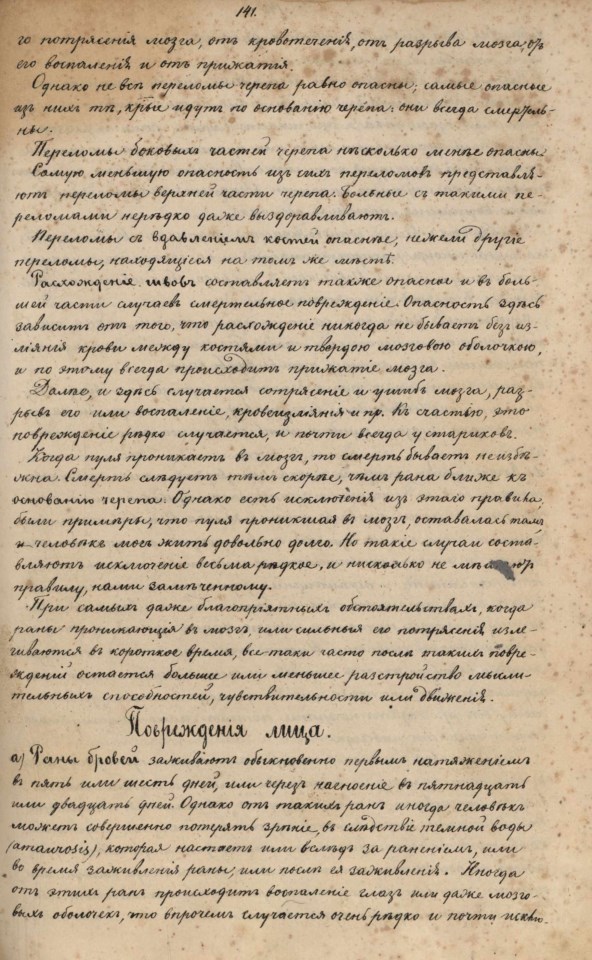 141.
го потрясенія мозга, отъ кровотеченія, отъ разрыва мозга, отъ
его воспаленія и отъ прижатія.
Однако не всѣ переломы черепа равно опасны; самые опасные
изъ нихъ тѣ, крые идутъ по основанію черепа: они всегда смертель-
ны.
Переломы боковыхъ частей черепа нѣсколько менѣе опасны.
Самую меньшую опасность изъ сихъ переломовъ представля-
ютъ переломы верхней части черепа. Больные съ такими пе-
реломами нерѣдко даже выздоравливаютъ.
Переломы съ вдавленіемъ костей опаснѣе, нежели другіе
переломы, находящіеся на томъ же мѣстѣ.
Расхожденіе швовъ составляетъ также опасное и въ боль-
шей части случаевъ смертельное поврежденіе. Опасность здѣсь
зависитъ отъ того, что расхожденіе никогда не бываетъ безъ из-
ліянія крови между костями и твердою мозговою оболочкою,
и по этому всегда происходитъ прижатіе мозга.
Далѣе, и здѣсь случается сотрясеніе и ушибъ мозга, раз-
рывъ его или воспаленіе, кровоизліянія и пр. Къ счастью, это
поврежденіе рѣдко случается, и почти всегда у стариковъ.
Когда пуля проникаетъ въ мозгъ, то смерть бываетъ неизбѣ-
жна. Смерть слѣдуетъ тѣмъ скорѣе, чѣмъ рана ближе къ
основанію черепа. Однако есть исключенія изъ этаго правила,
были примѣры, что пуля проникшая въ мозгъ, оставалась тамъ,
и человѣкъ могъ жить довольно долго. Но такіе случаи соста-
вляютъ исключеніе весьма рѣдкое, и нисколько не
правилу, нами замѣченному.
При самыхъ даже благопріятныхъ обстоятельствахъ, когда
раны проникающія въ мозгъ, или сильныя его потрясенія изле-
чиваются въ короткое время, все таки часто послѣ такихъ повре-
жденій остается большее или меньшее разстройство мысли-
тельныхъ способностей, чувствительности или движенія.
Поврежденія лица.
а) Раны бровей заживаютъ обыкновенно первымъ натяженіемъ
въ пять или шесть дней, или черезъ нагноеніе въ пятнадцать
или двадцать дней. Однако отъ такихъ ранъ иногда человѣкъ
можетъ совершенно потерять зрѣніе, въ слѣдствіе темной воды
(amaurosis), которая настаетъ или вслѣдъ за раненіемъ, или
во время заживленія раны, или послѣ ея заживленія. Иногда
отъ этихъ ранъ происходитъ воспаленіе глазъ или даже мозго-
выхъ оболочекъ, что впрочемъ случается очень рѣдко и почти исклю-